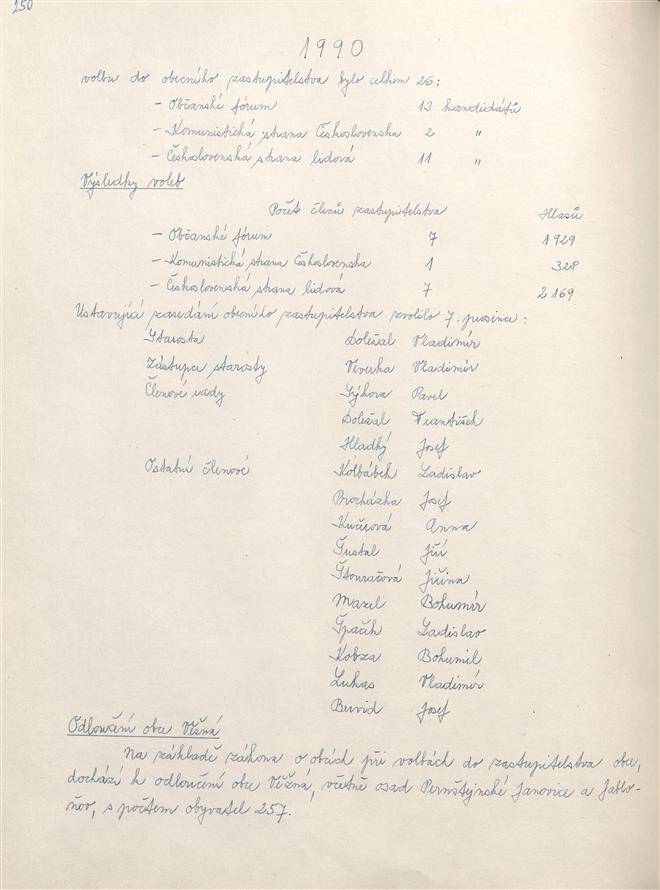 250
1990
volbu do obecního zastupitelstva bylo celkem 26:
- Občanské fórum 13 kandidátů
- Komunistická strana Československa 2 "
- Československá strana lidová 11 "
Výsledky voleb
Počet členů zastupitelstva Hlasů
- Občanské fórum 7 1929
- Komunistická strana Československa 1 328
- Československá strana lidová 7 2169
Ustavující zasedání obecního zastupitelstva zvolilo 7. prosince:
Starosta Doležal Vladimír
Zástupce starosty Veverka Vladimír
Členové rady Sýkora Pavel
Doležal František
Hladký Josef
Ostatní členové Kolbábek Ladislav
Procházka Josef
Kučerová Anna
Šustal Jiří
Štouračová Jiřina
Mazel Bohumír
Špaček Ladislav
Kobza Bohumil
Lukas Vladimír
Josef
Odloučení obce Věžná
Na základě zákona o obcích při volbách do zastupitelstva obce,
dochází k odloučení obce Věžná, včetně osad Pernštejnské Janovice a Jablo-
ňov, s počtem obyvatel 257.